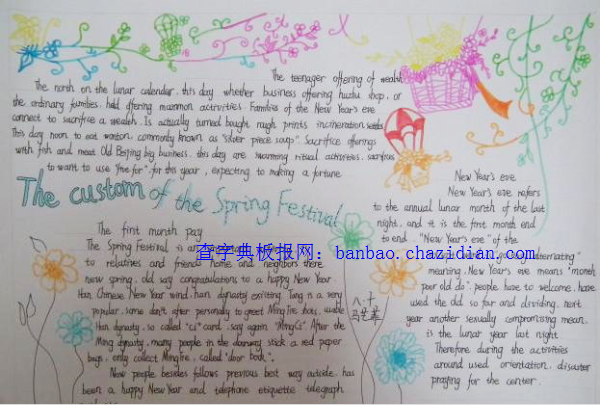 The teenager offering of wealth
The north on the lunar calendar, this day whether business offering shop, or
the ordinary families, held ftering mammon activities. Families of the New Year's eve
connect to sacrifice a wealth. Is actually turned bought rough prints incineration
This day noon to eat wonton, commonly known as "silver piece soup". Sacrifice offerings
with fish and meat. Old Beijing big business, this day are swarming ritual activities, sacrifices
to want to use "five for", for this year, expecting to making a fortune
The custom of the Spring Festival
The first month pay
The Spring Festival is an
to relatives and friends home and neighbors there
new spring, old say congratulations to a happy New Year
Han Chinese New Year wind, han dynasty exciting. Tang is a very
popular, some don't after personally to greet MingTie hos,
Han dynasty, so called "ci" card, say again "MingCi". After the
Ming dynasty, many people in the doorway stick a red paper
bags, only collect MingTie, called "door book".
Now people besides follows previous best way outside, has
been a happy New Year and telephone etiquette telegraph
New Year's eve
New Year's eve refers
to the annual lunar month of the last
night, and it is the first month end
to end. "New Year's eve" of the
meaning, New Year's eve means "month
poor old do". people have to welcome, have
used the old so far and dividing, next
year another sexually compromising mean,
is the lunar year last night.
Therefore during the activities
around used orientation, disaster
praying for the center.
八.十
查字典板报网：banbao.chazidian.com